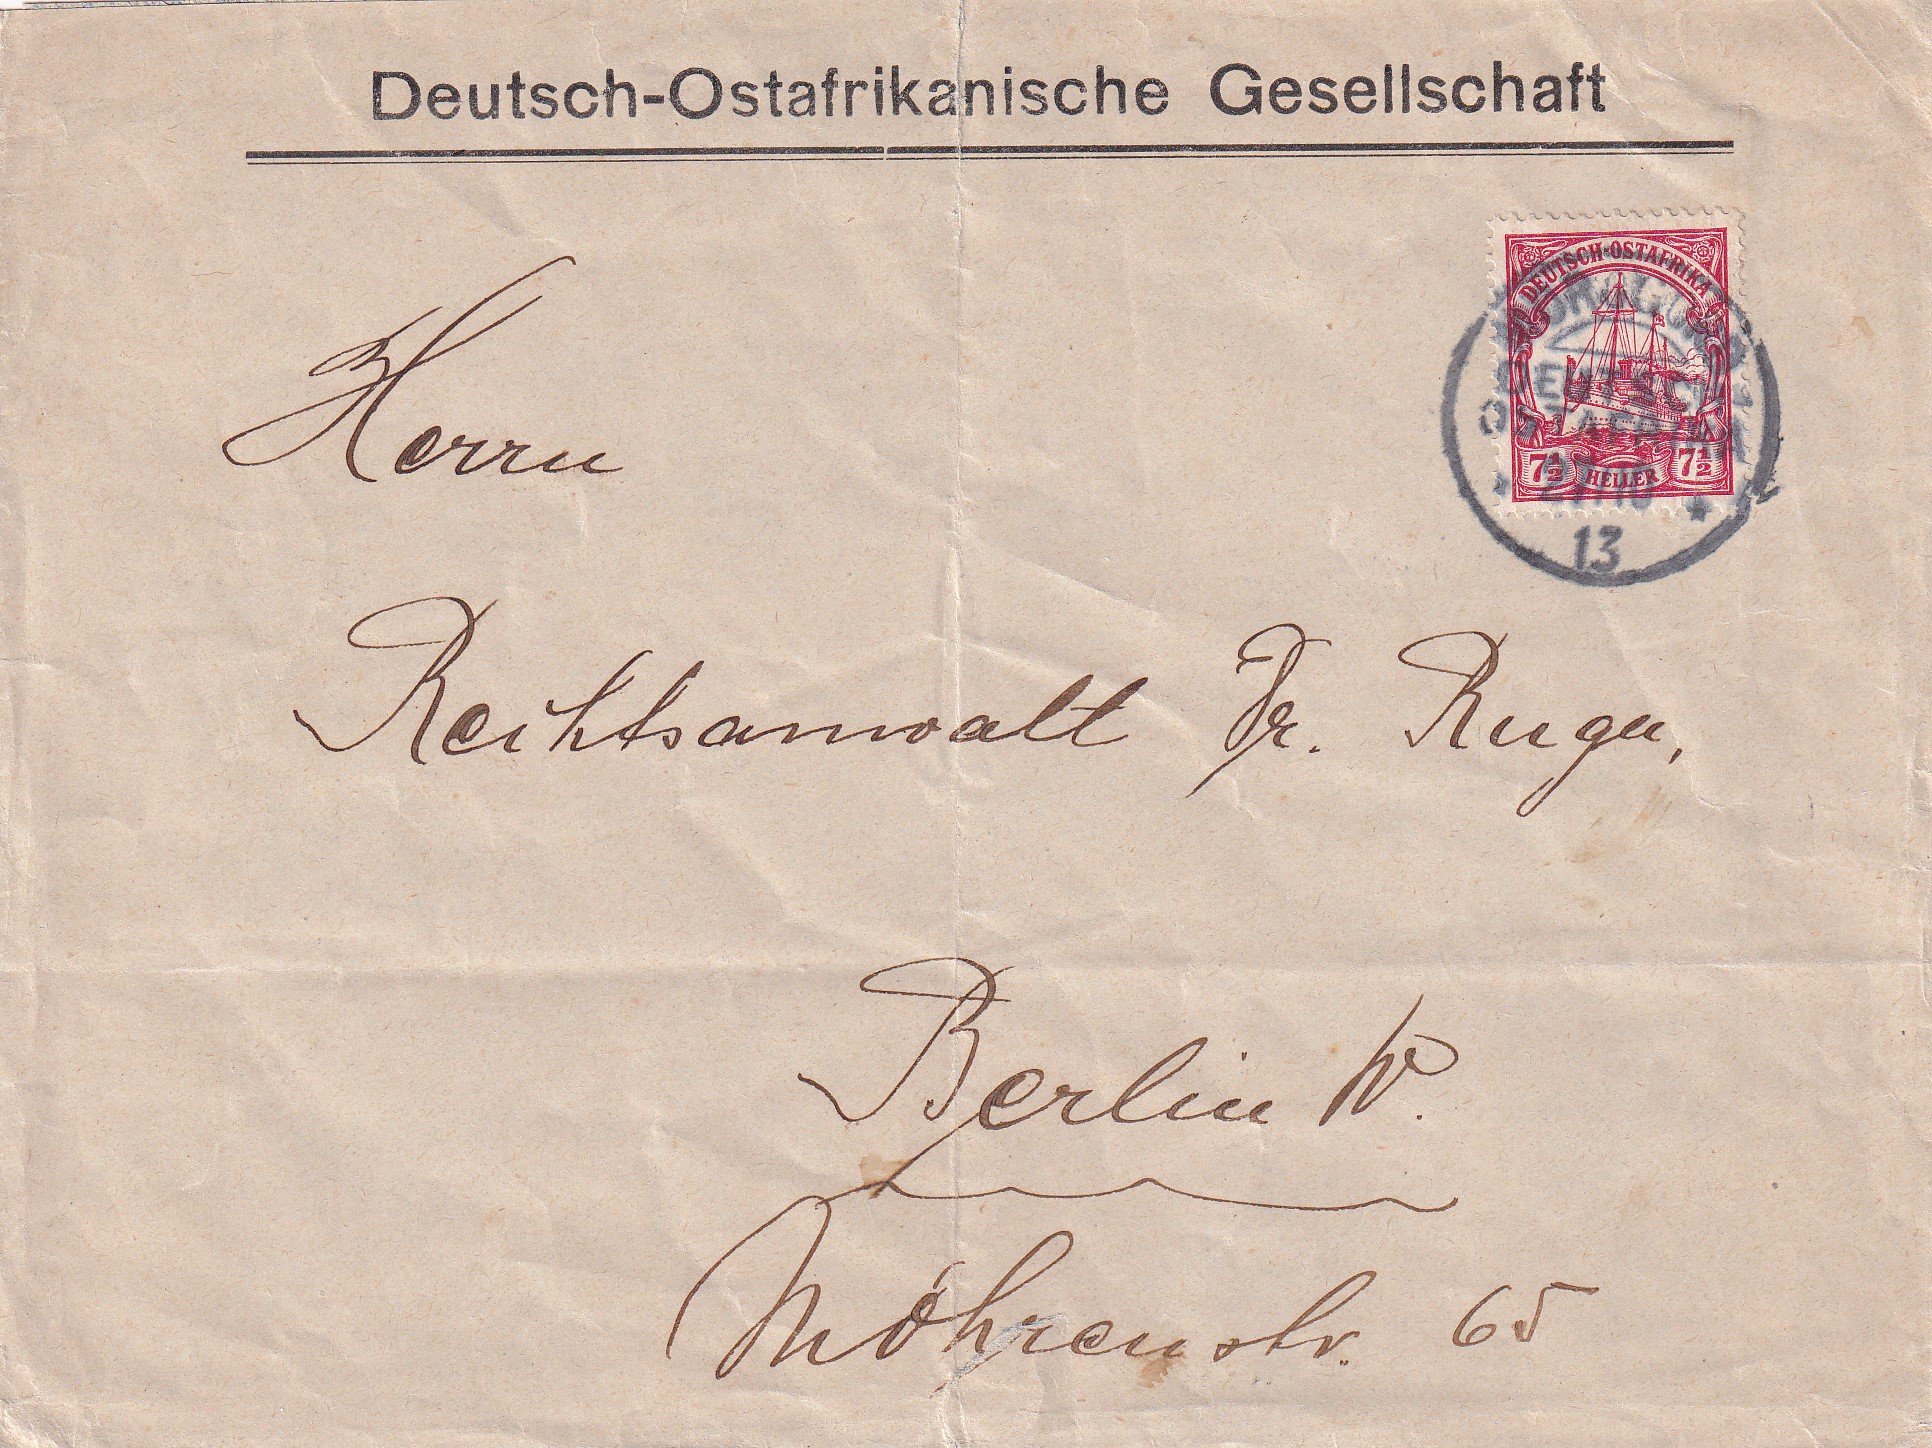 Deutsch-Ostafrikanische Gesellschaft
DEUTSCH-OSTAFRIKA
7½ HELLER 7½
DEUTSCH
OSTAFRIKA
13
Herrn
Rechtsanwalt Dr. Ruge,
Berlin W.
Möhrenstr. 65